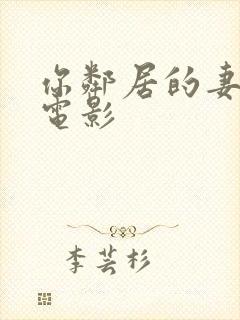 你鄰居的妻
電影
李芸杉